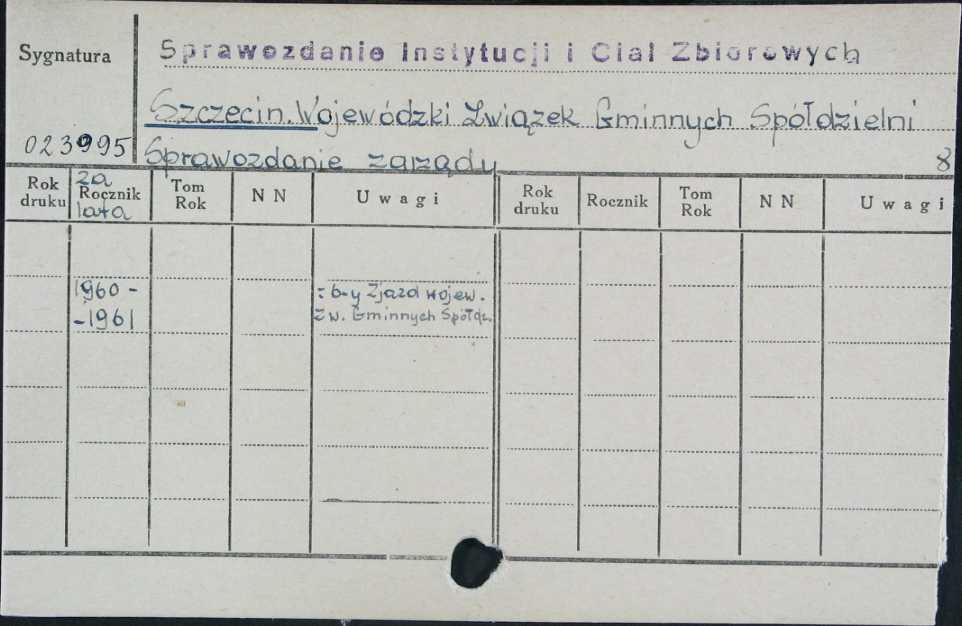 Sygnatura
Sprawozdanie Instytucji i Ciał Zbiorowych
Szczecin. Wojewódzki Związek Gminnych Spółdzielni
023995
Sprawozdanie zarządy
8
Rok druku
za Rocznik lata
Tom Rok
N N
Uwagi
Rok druku
Rocznik
Tom Rok
N N
Uwagi
1960 -
- 1961
: 6-y Zjazd wojew.
Zw. Gminnych Spółdz.